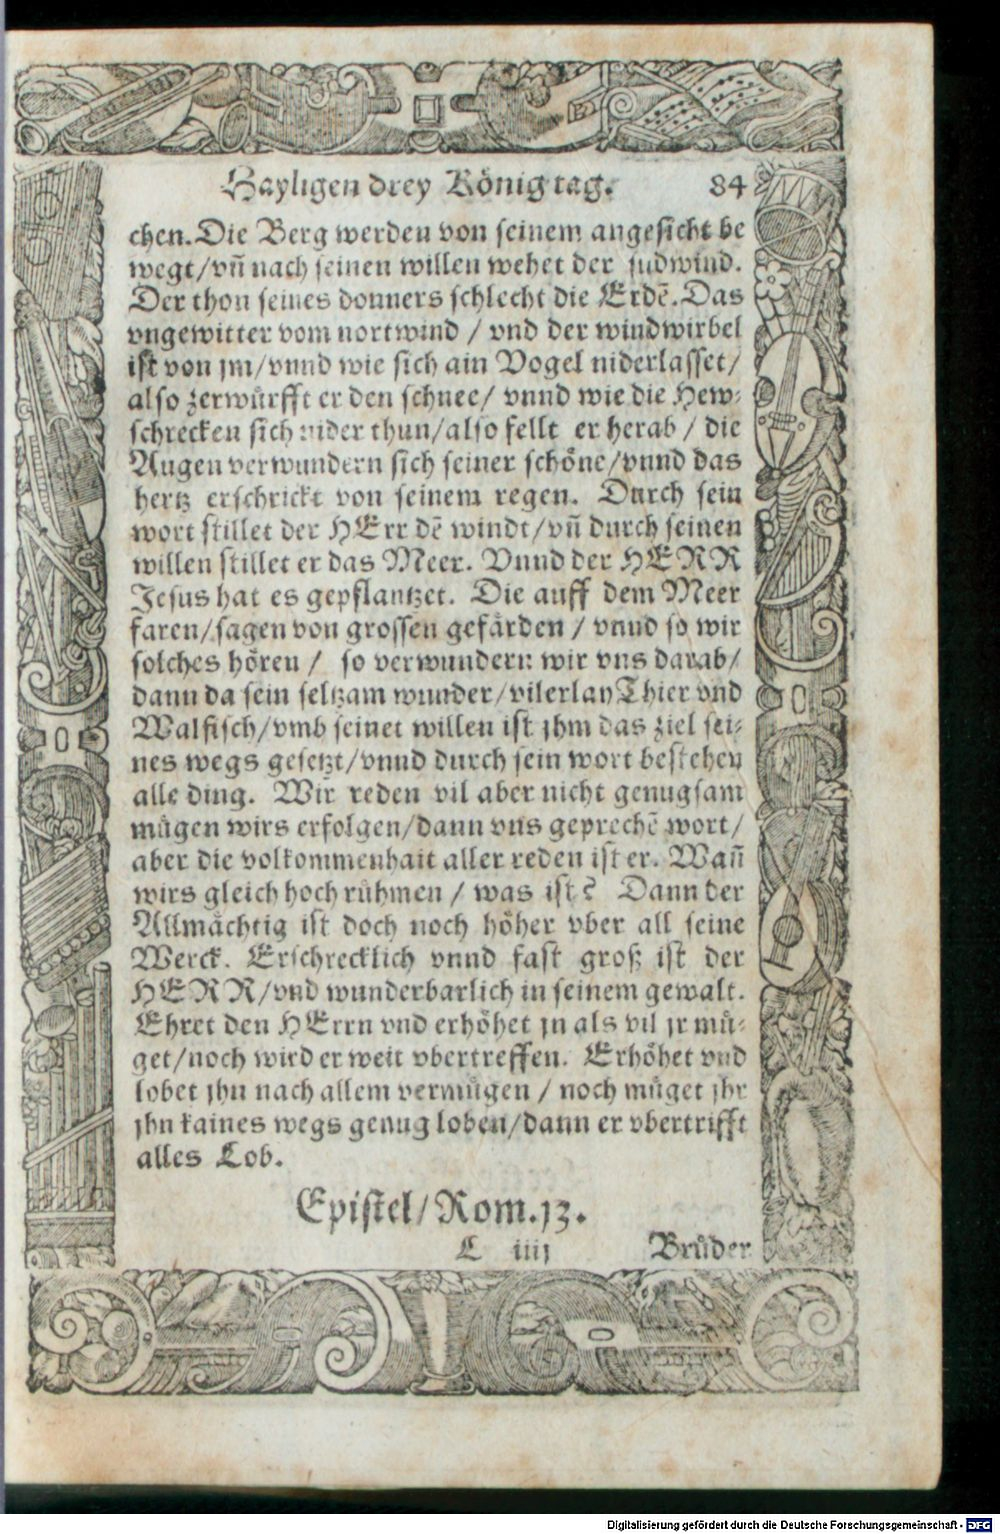 Hayligen drey König tag. 84
chen. Die Berg werden von seinem angesicht be
wegt/vñ nach seinen willen wehet der sudwind.
Der thon seines donners schlecht die Erdē. Das
vngewitter vom nortwind / vnd der windwirbel
ist von jm/vnnd wie sich ain Vogel niderlasset/
also zerwuͤrfft er den schnee/ vnnd wie die Hew⸗
schrecken sich nider thun/also fellt er herab / die
Augen verwundern sich seiner schoͤne/vnnd das
hertz erschrickt von seinem regen. Durch sein
wort stillet der HErr dē windt/vñ durch seinen
willen stillet er das Meer. Vnnd der HERR
Jesus hat es gepflantzet. Die auff dem Meer
faren/sagen von grossen gefaͤrden / vnnd so wir
solches hoͤren / so verwundern wir vns darab/
dann da sein seltzam wunder/vilerlay Thier vnd
Walfisch/vmb seinet willen ist jhm das ziel sei⸗
nes wegs gesetzt/vnnd durch sein wort bestehen
alle ding. Wir reden vil aber nicht genugsam
muͤgen wirs erfolgen/dann vns geprechē wort/
aber die volkommenhait aller reden ist er. Wañ
wirs gleich hoch ruͤhmen / was ist? Dann der
Allmaͤchtig ist doch noch hoͤher vber all seine
Werck. Erschrecklich vnnd fast groß ist der
HERR/vnd wunderbarlich in seinem gewalt.
Ehret den HErrn vnd erhoͤhet jn als vil jr muͤ⸗
get/noch wird er weit vbertreffen. Erhoͤhet vnd
lobet jhn nach allem vermuͤgen / noch muͤget jhr
jhn kaines wegs genug loben/dann er vbertrifft
alles Lob.
Epistel/Rom.13.
L iiij Bruͤder
Digitalisierung gefördert durch die Deutsche Forschungsgemeinschaft - DFG